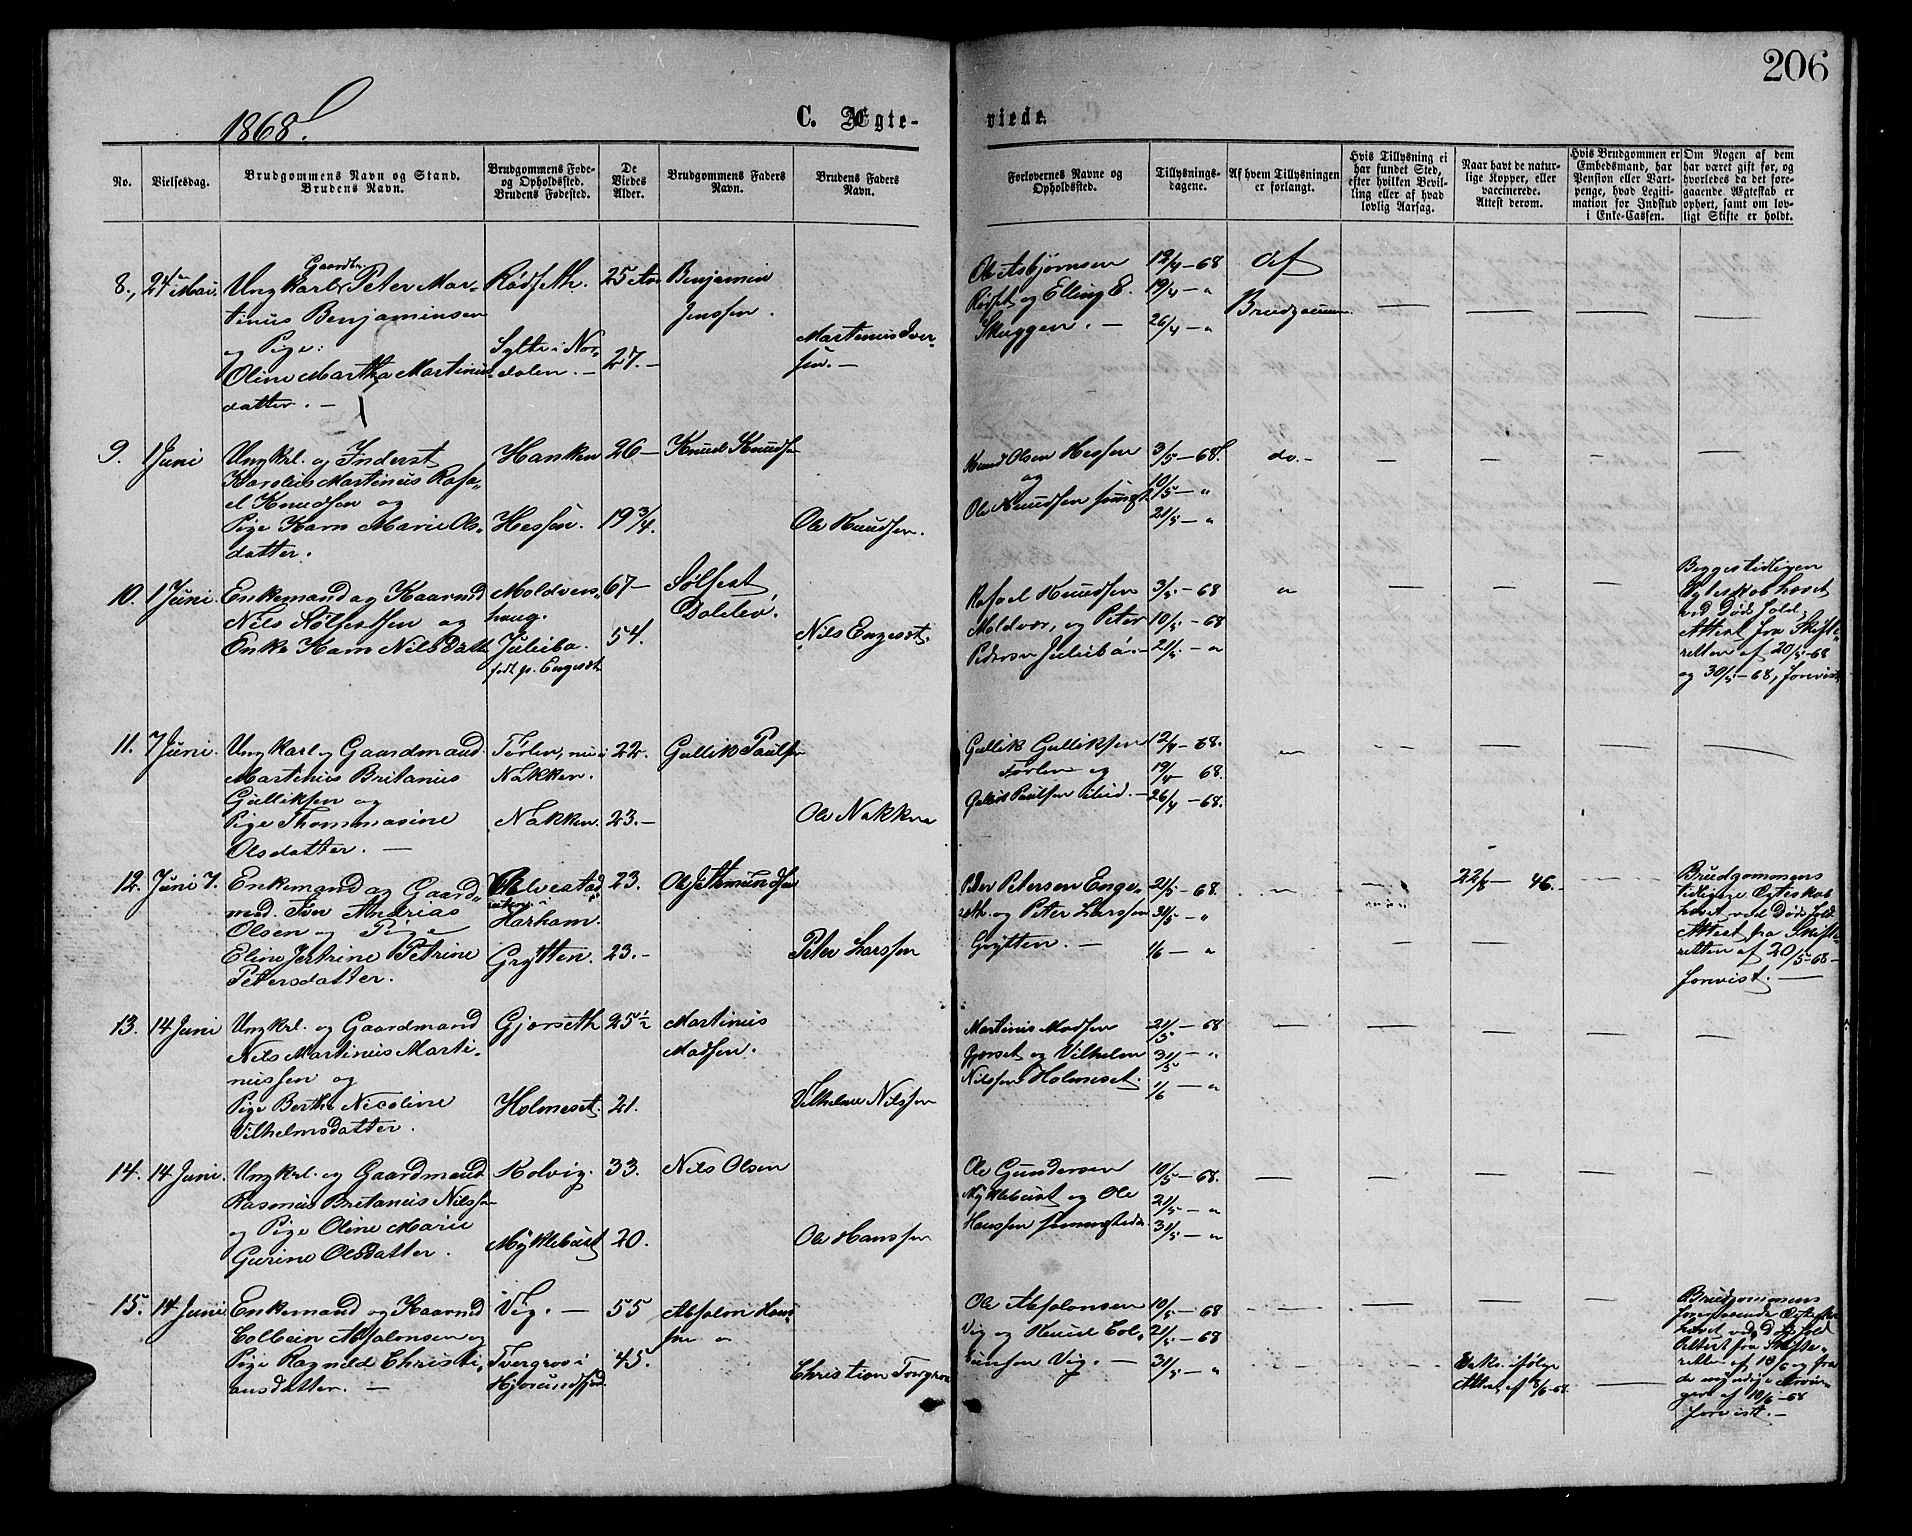 206
1868.
C. Ægte-
viede.
No.
Vielsesdag.
Brudgommens Navn og Stand.
Brudens Navn.
Brudgommens Føde-
og Opholdssted.
Brudens Fødested.
De
Viedes
Alder.
Brudgommens Faders
Navn.
Brudens Faders
Navn.
Forlovernes Navne og
Opholdssted.
Tillysnings-
dagene.
Af hvem Tillysningen
er forlangt.
Hvis Tillysning ei
har fundet Sted,
efter hvilken Bevil-
ling eller af hvad
lovlig Aarsag.
Naar havt de natur-
lige Kopper, eller
vaccinerede.
Attest derom.
Hvis Brudgommen er
Embedsmand, har
Pension eller Vart-
penge, hvad Legiti-
mation for Indskud
i Enke-Cassen.
Om Nogen af dem
har været gift før, og
hvorledes da det fore-
gaaende Ægteskab er
ophørt, samt om lov-
ligt Skifte er holdt.
8., 24de Mai.
Gaardbr.
Ungkarl Peter Mar-
tinus Benjaminsen
og Pige:
Oline Martha Martinus-
datter. —
Rødseth.
Sylte i Nor-
dalen. —
25 Aar
27. —
Benjamin
Jenssen.
Martinus Iver-
sen. —
Ole Asbjørnsen
Rødset og Elling E.
Skuggen. —
19/4 — 68
19/4 — "
26/4 — "
Af
Brudgommen.
9. 1 Juni
Ungkrl. og Inderst
Karolus Martinus Rafa-
el Knudsen og
Pige Karn Marie Ols-
datter.
Hanken
Hessen.
26 —
19 3/4.
Knud Knudsen
Ole Knudsen.
Knud Olsen Hessen
og
Ole Knudsen
3/5 — 68.
10/5 — "
21/5 — "
do. —
10. 1 Juni.
Enkemand og Kaarmd
Nils Sølfestsen og
Enke Karn Nilsdatt
Moldvers-
haug.
Juleibø.
født p. Engeset
67 —
54.
Sølfest
Dalebø.
Nils Engeset.
Rafael Knudsen
Moldvær, og Peter
Pedersen Juleibø. —
3/5 — 68
10/5 — 68
21/5 — "
"
Begges tidligere
Egteskab hævet
ved Dødsfald,
Attest fra Skifte-
retten af 20/5-68
og 30/5-68, forevist
11. 7 Juni.
Ungkarl og Gaardmand
Martinus Britanius
Gulliksen og
Pige Thommasine
Olsdatter. —
Tørlen, nu i
Nakken.
Nakken.
22.
23. —
Gullik Paulsen
Ole Nakken
Gullik Gulliksen
Tørlen og
Gullik Paulsen ibid. —
12/4 — 68.
19/4 68.
26/4 — 68.
"
12. Juni 7.
Enkemand og Gaard-
md. Iver Andreas
Olsen og Pige
Eline Jertrine Petrine
Petersdatter.
Harham.
Grytten.
23.
23. —
Ole Asmundsen
Peter Larssen
Peder Petersen Enge-
seth. og Peter Larssen
Grytten. —
21/5 — 68.
31/5 — "
1/6 — "
22/8 — 46.
Brudgommens
tidligere Egteskab
hævet ved Dødsfald
Attest fra Skifte-
retten af 20/5-68
forevist. —
13. 14 Juni
Ungkrl. og Gaardmand
Nils Martinus Marti-
nussen og
Pige Berthe Nicoline
Vilhelmsdatter.
Gjørseth
Holmeset.
25 1/2
21.
Martinus
Madsen.
Vilhelm Nilssen
Martinus Madsen
Gjørset og Vilhelm
Nilssen Holmeset.
21/5 — 68
31/5 — "
1/6 — "
14. 14 Juni.
Ungkrl. og Gaardmand
Rasmus Britanius Nilssen
og Pige Oline Marie
Gurine Olsdatter.
Kolvig.
Myklebust
33.
20.
Nils Olsen
Ole Hanssen
Ole Gundersen
Myklebust og Ole
Hanssen
10/5 — 68.
21/5 — "
31/5 — "
15. 14 Juni
Enkemand og Kaarmd
Colbein Absalonsen og
Pige Ragnild Christi-
ansdatter. —
Vig. —
Tvergros i
Hjørundfjord
55
45.
Absalon Hans-
sen
Christian Tvergros
Ole Absalonsen
Vig og Knud Col-
beinsen Vig. —
10/5 — 68
21/5 — 68
31/5 — "
Vakc. ifølge
Attest af 8/6-68.
Brudgommens
foregaaende Egteskab
hævet ved Dødsfald
Attest fra Skifte-
retten af 18/5 og fra
de myndige Arvin-
ger af 10/6-68
forevist. —